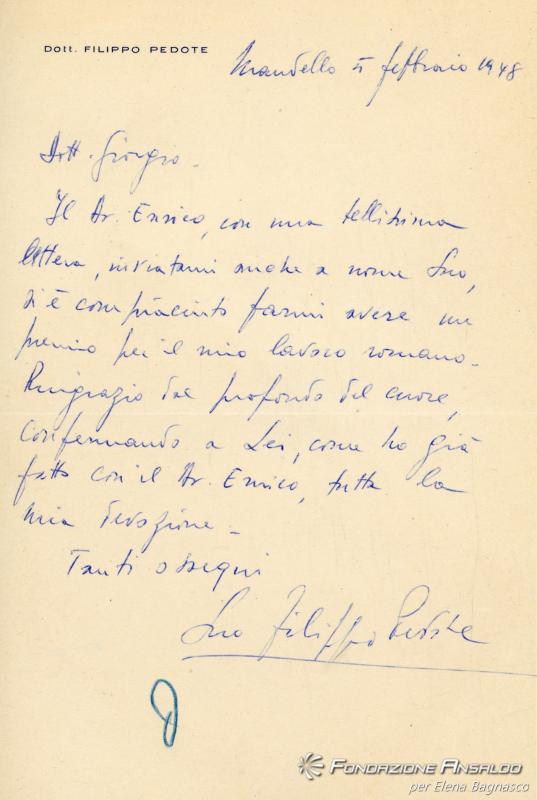 Dott. FILIPPO PEDOTE
Mandello 5 febbraio 1948
Dott. Giorgio -
Il Dr. Enrico, con una bellissima
lettera, inviatami anche a nome Suo,
si è compiaciuto farmi avere un
premio per il mio lavoro romano -
Ringrazio dal profondo del cuore,
confermando a Lei, come ho già
fatto con il Dr. Enrico, tutta la
mia devozione -
Tanti ossequi
Suo Filippo Pedote
FONDAZIONE ANSALDO
per Elena Bagnasco